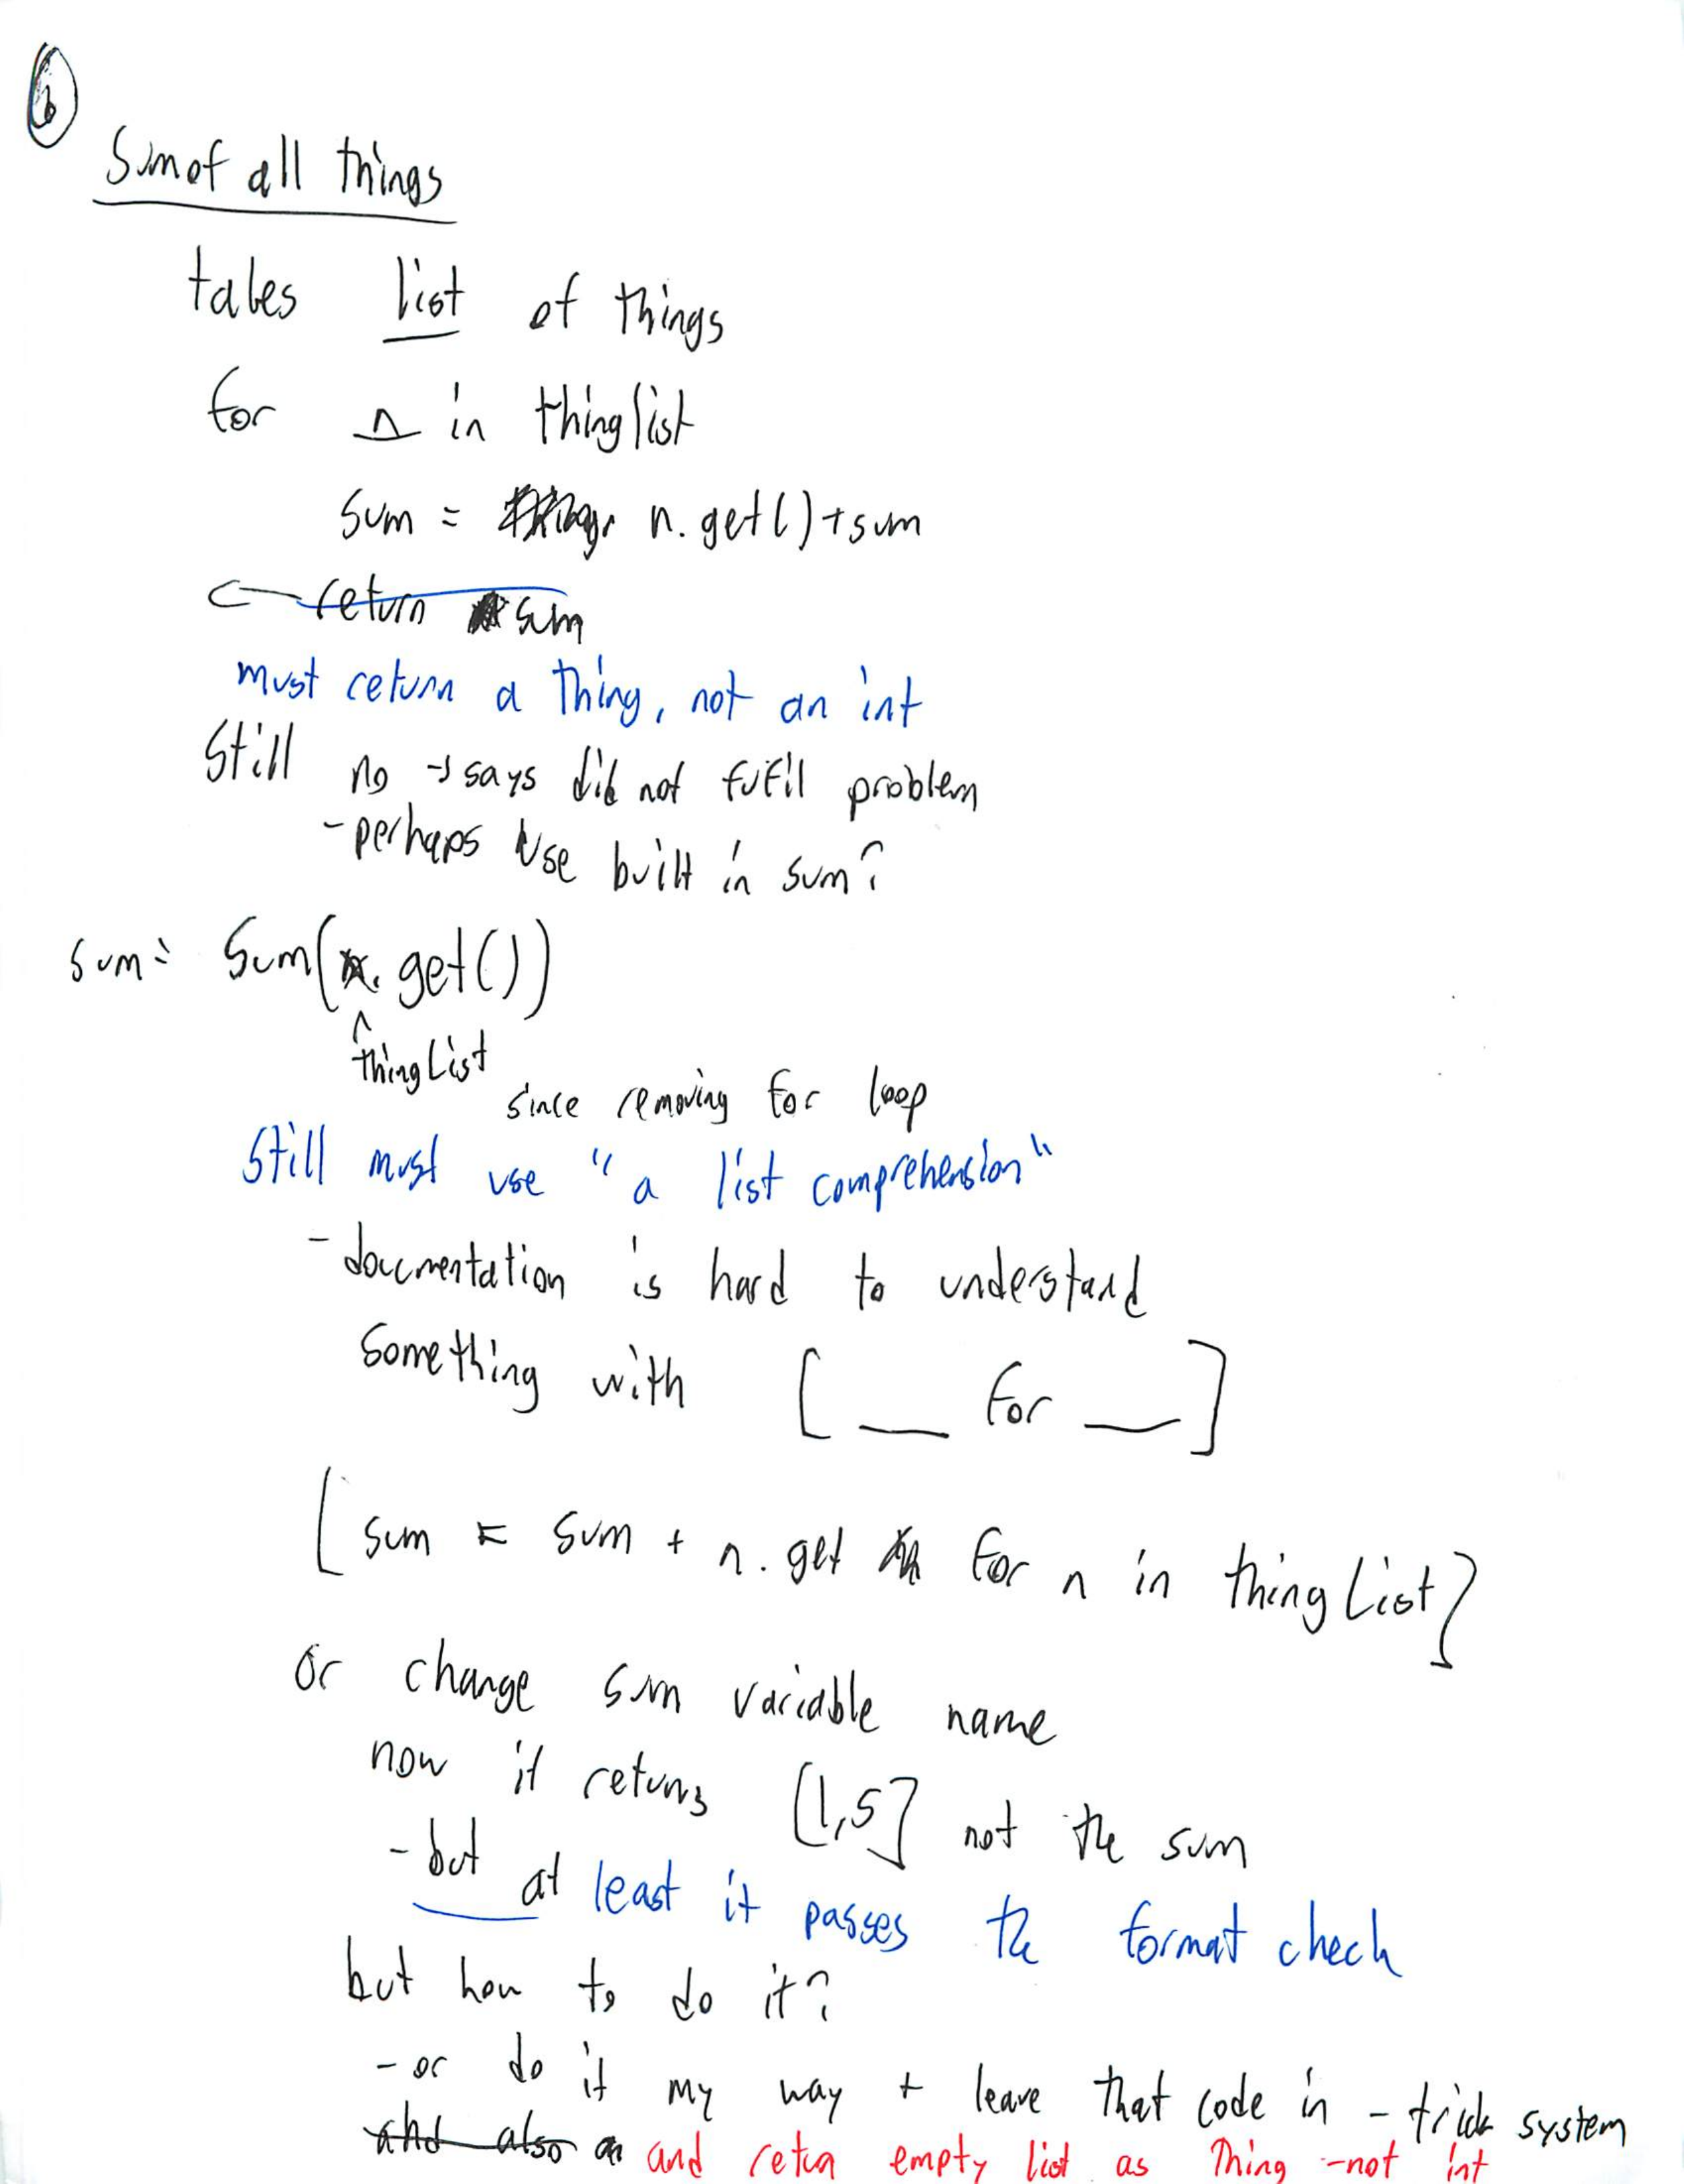 6
Sum of all things
takes list of things
for n in thinglist
sum = n.get()+sum
return sum
must return a Thing, not an int
Still no → says did not fufil problem
- perhaps use built in sum?
sum = Sum(.get())
^
thingList
since removing for loop
Still must use "a list comprehension"
- documentation is hard to understand
Something with [ __ for __ ]
[ sum = sum + n.get for n in thingList]
or change sum variable name
now it returns [1,5] not the sum
- but at least it passes the format check
but how to do it?
- or do it my way + leave that code in - trick system
and also and retun empty list as Thing - not int